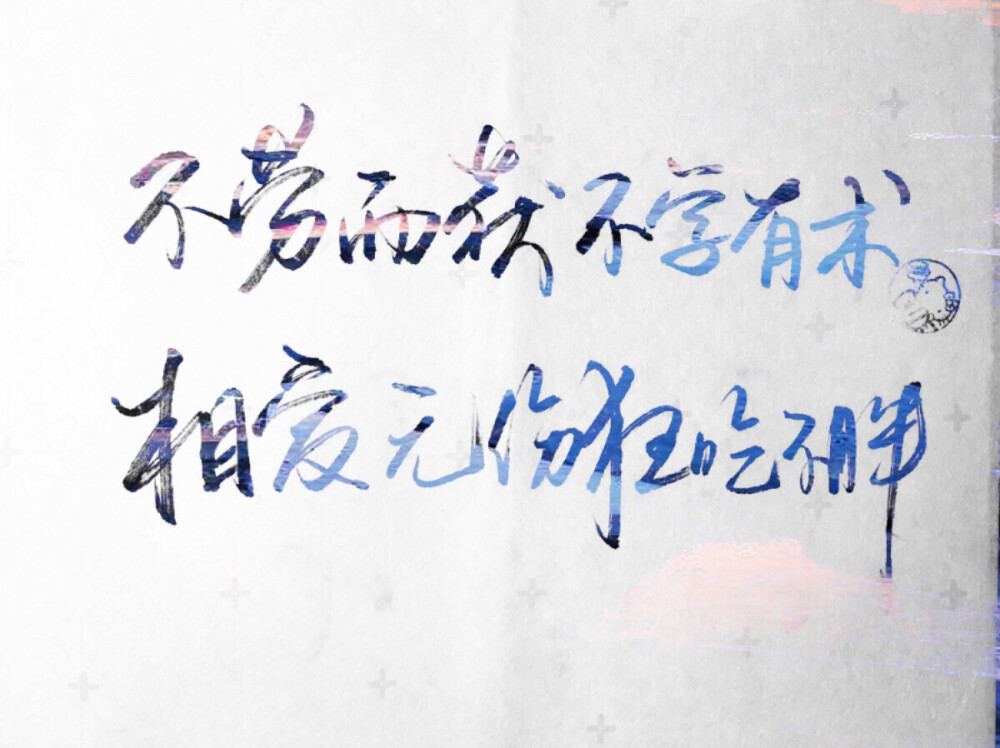 不劳而获不学有术
相爱无伤狂吃不胖